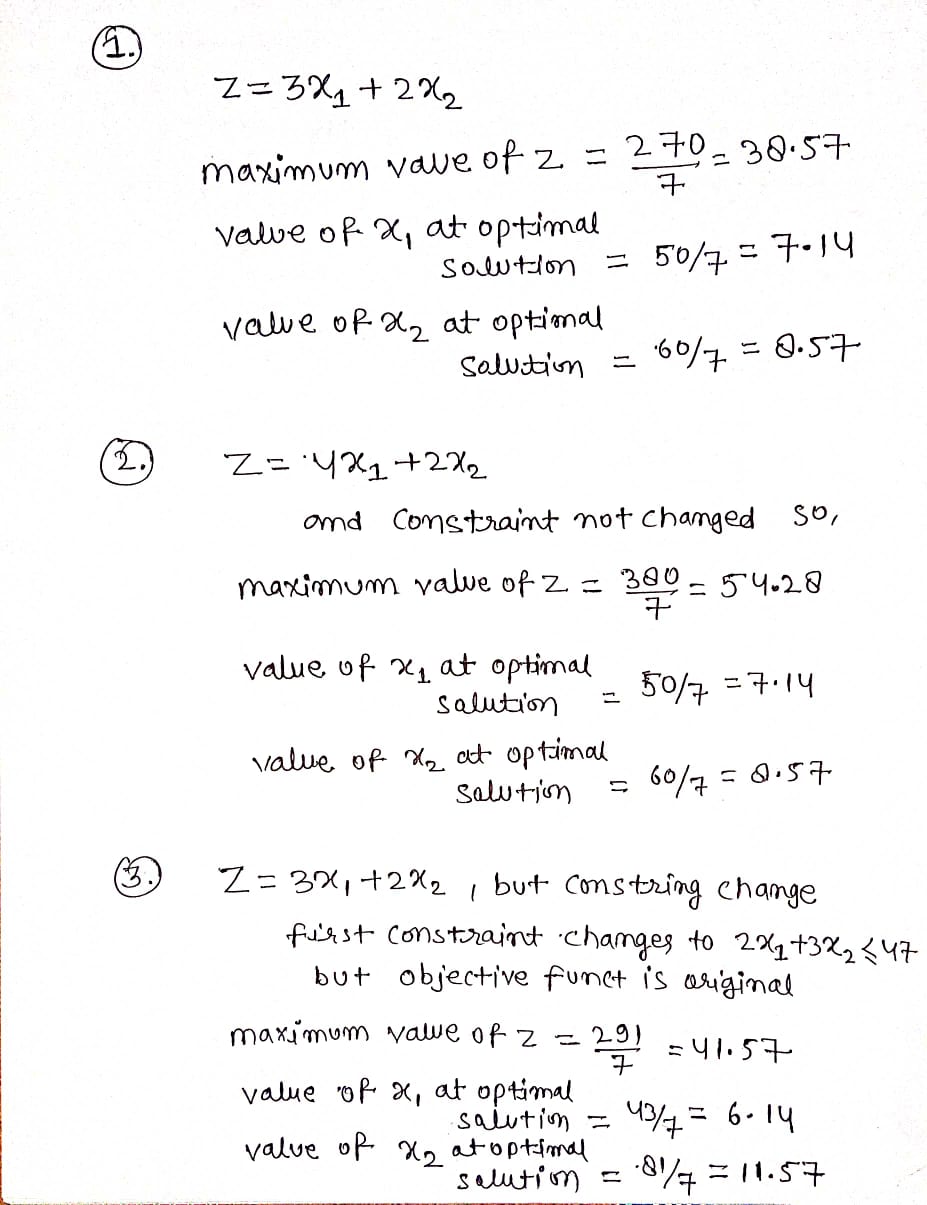 1.
Z = 3x1 + 2x2
maximum vaue of z = 270/7 = 38.57
value of x1 at optimal
solution = 50/7 = 7.14
value of x2 at optimal
salution = 60/7 = 8.57
2.
Z = 4x1 + 2x2
and constraint not changed so,
maximum value of z = 380/7 = 54.28
value of x1 at optimal
salution = 50/7 = 7.14
value of x2 at optimal
salution = 60/7 = 8.57
3.
Z = 3x1 + 2x2 , but constring change
first constraint changes to 2x1+3x2 ≤ 47
but objective funct is original
maximum value of z = 291/7 = 41.57
value of x1 at optimal
salution = 43/7 = 6.14
value of x2 at optimal
salution = 81/7 = 11.57